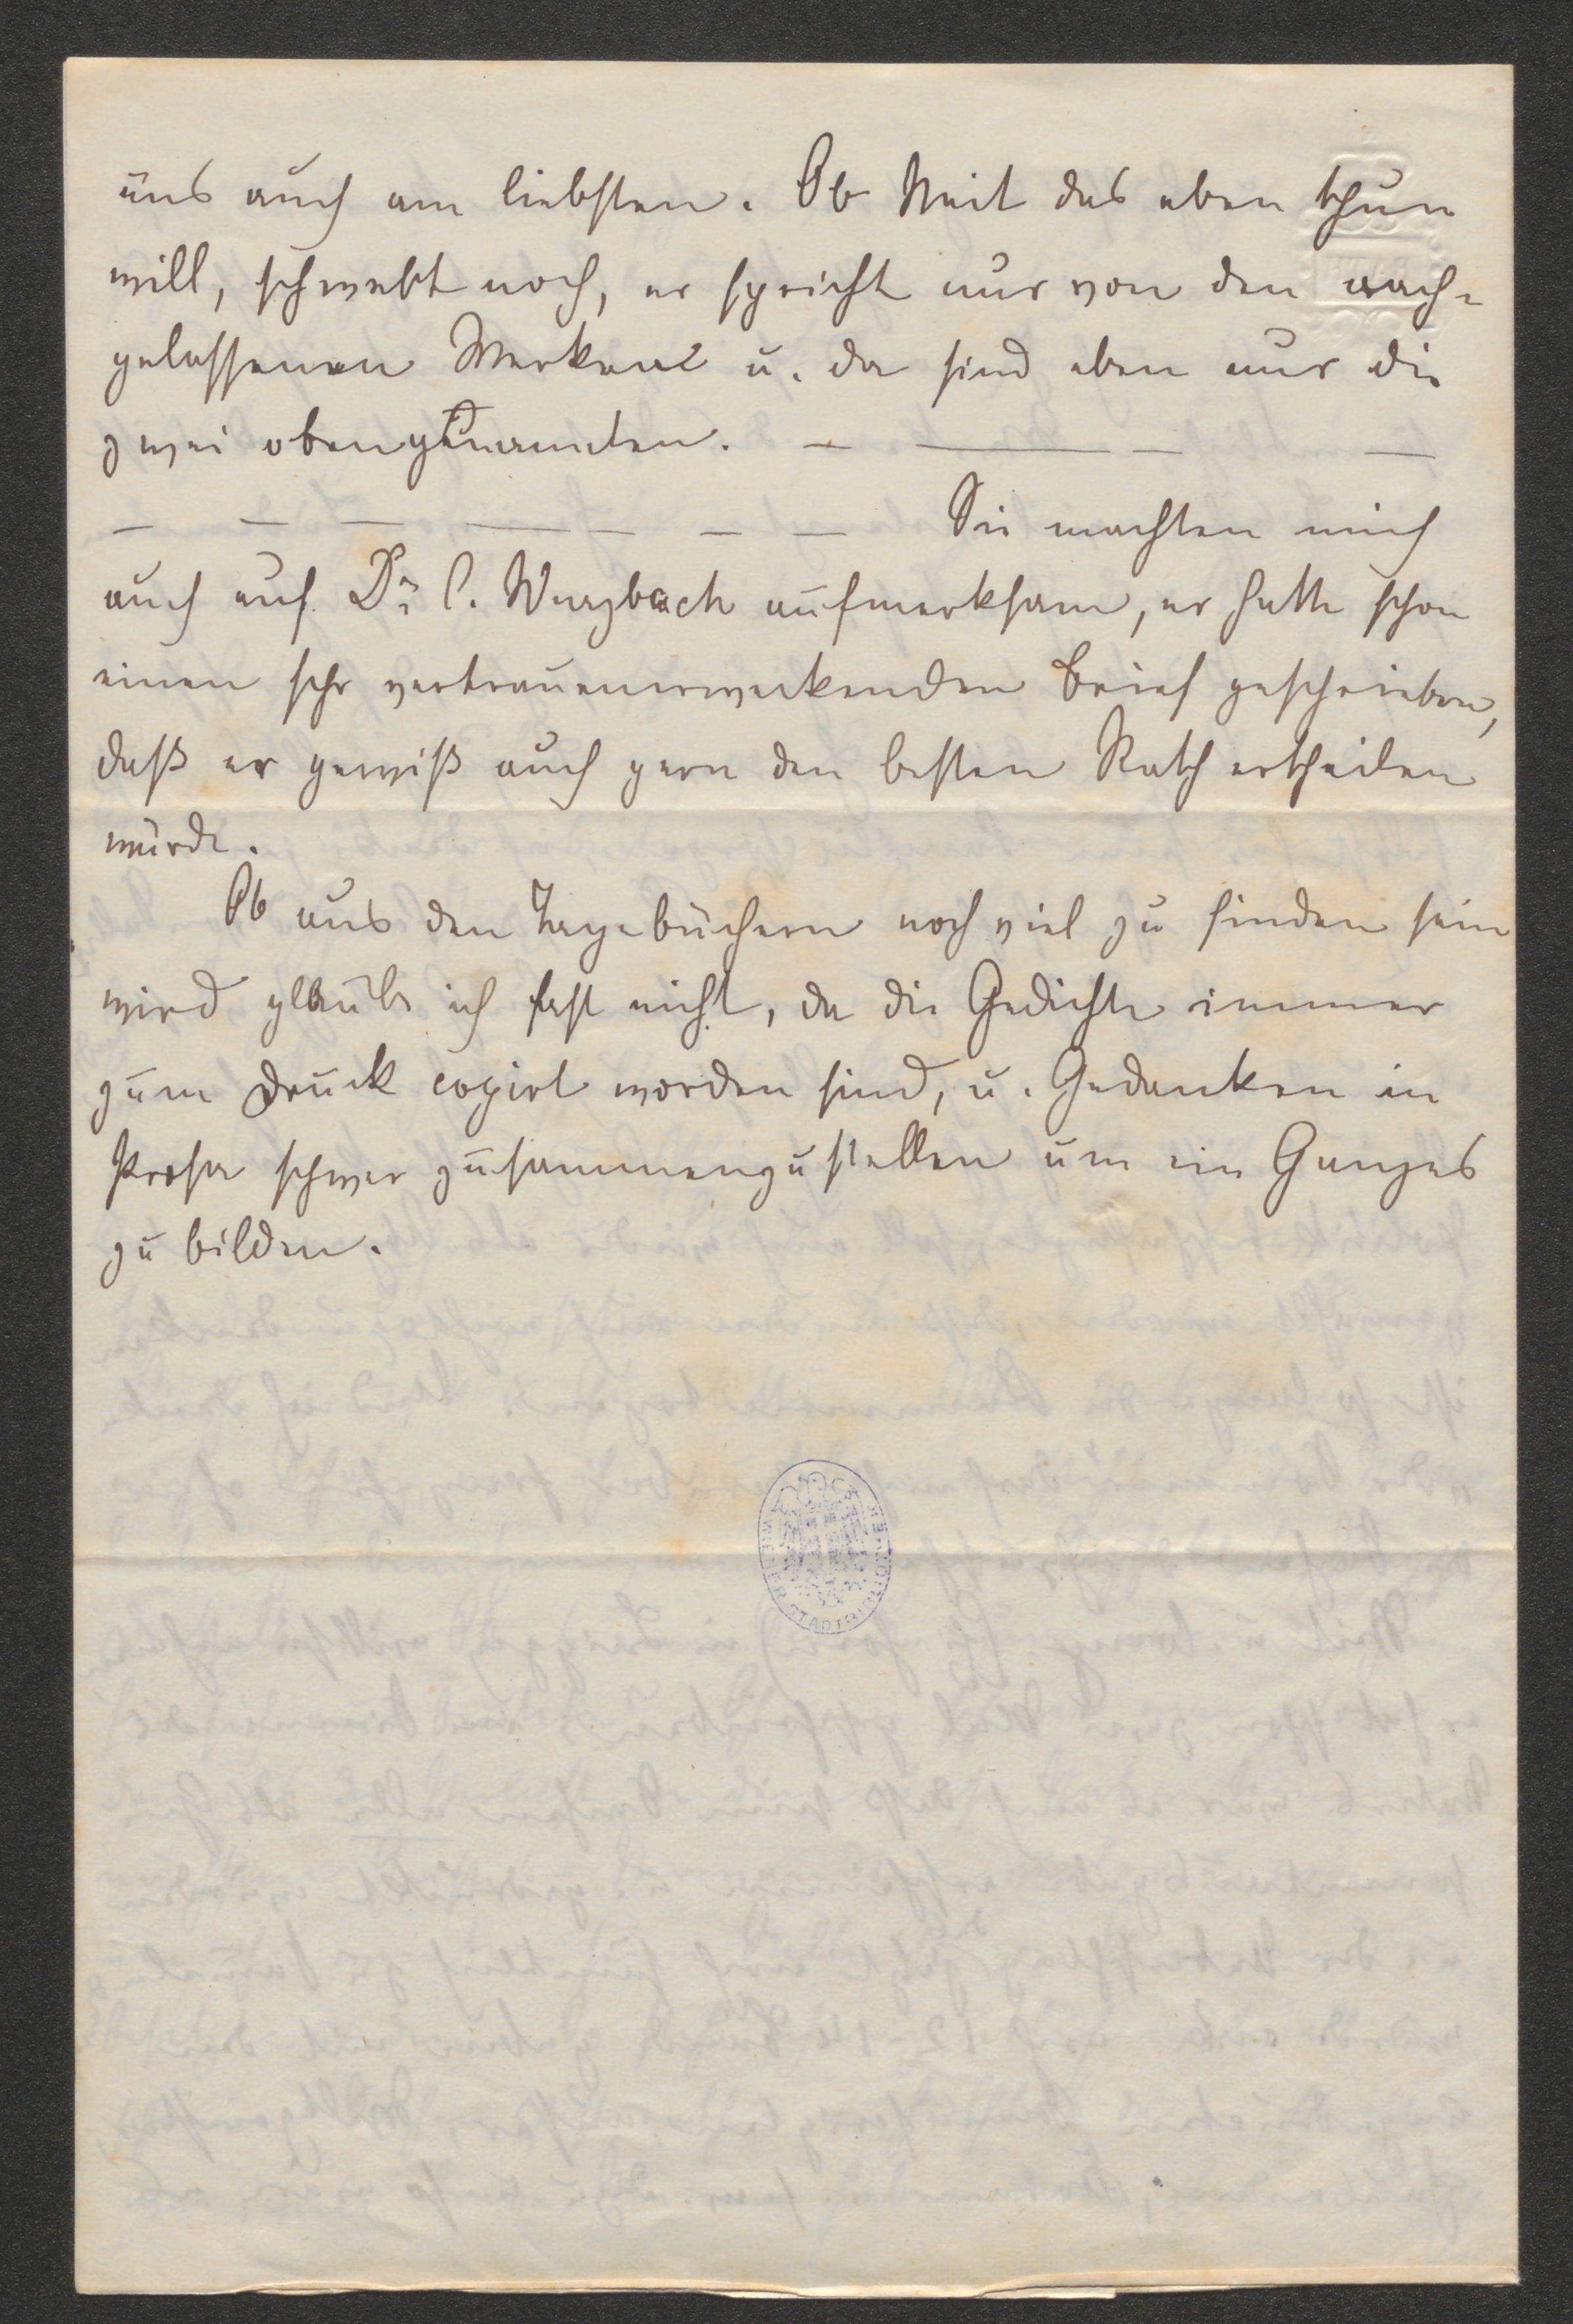 uns auch am liebsten. Ob Veit das eben thun
will, schwebt noch, er spricht nur von den nach-
gelassenen Werken u. da sind eben nur die
zwei obengenannten. — — — —
— — — — — — — Sie machten mich
auch auf Dr C. Wurzbach aufmerksam, er hatte schon
einen sehr vertrauenerweckenden Brief geschrieben,
daß er gewiß auch gern den besten Rath ertheilen
würde.
Ob aus den Tagebüchern noch viel zu finden sein
wird glaube ich fast nicht, da die Gedichte immer
zum Druck copirt worden sind, u. Gedanken in
Prosa schwer zusammenzustellen um ein Ganzes
zu bilden.
WIENER STADTBIBLIOTHEK